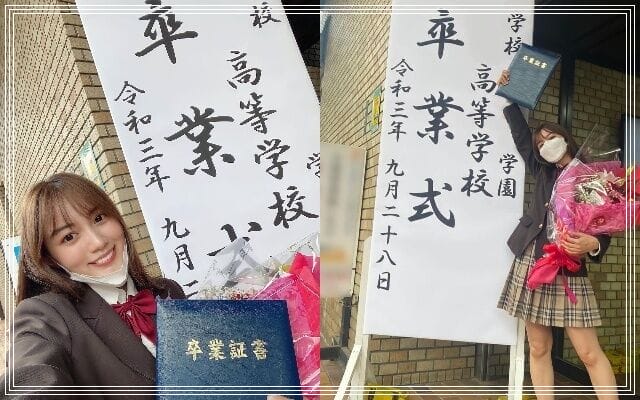 校
卒業式
高等学校
学
令和三年 九月二
卒業証書
学校
卒業式
高等学校
学園
令和三年 九月二十八日
卒業証書